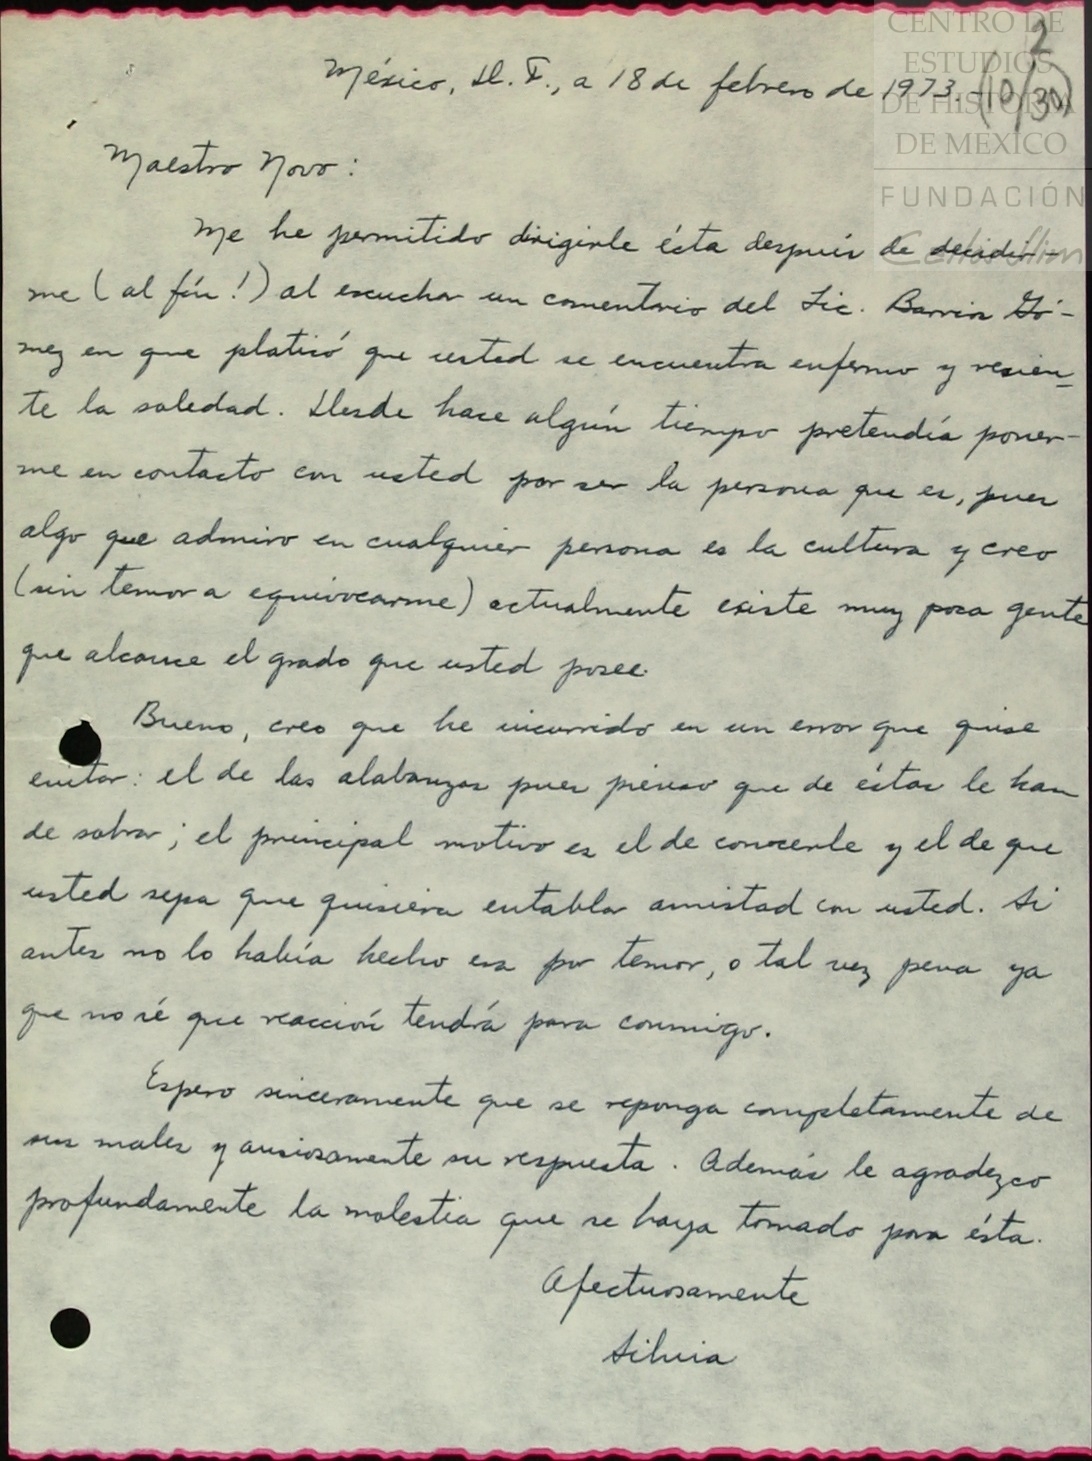 CENTRO DE
ESTUDIOS
DE HISTORIA
DE MÉXICO
FUNDACIÓN
Carlos Slim
2
(10/30)
México, D. F., a 18 de febrero de 1973.-
Maestro Novo:
Me he permitido dirigirle ésta después de decidir-
me (al fín!) al escuchar un comentario del Lic. Barrios Gó-
mez en que platicó que usted se encuentra enfermo y resien-
te la soledad. Desde hace algún tiempo pretendía poner-
me en contacto con usted por ser la persona que es, pues
algo que admiro en cualquier persona es la cultura y creo
(sin temor a equivocarme) actualmente existe muy poca gente
que alcance el grado que usted posee.
Bueno, creo que he incurrido en un error que quise
evitar: el de las alabanzas pues pienso que de éstas le han
de sobrar; el principal motivo es el de conocerle y el de que
usted sepa que quisiera entablar amistad con usted. Si
antes no lo había hecho era por temor, o tal vez pena ya
que no sé que reacción tendrá para conmigo.
Espero sinceramente que se reponga completamente de
sus males y ansiosamente su respuesta. Además le agradezco
profundamente la molestia que se haya tomado para ésta.
Afectuosamente
Silvia